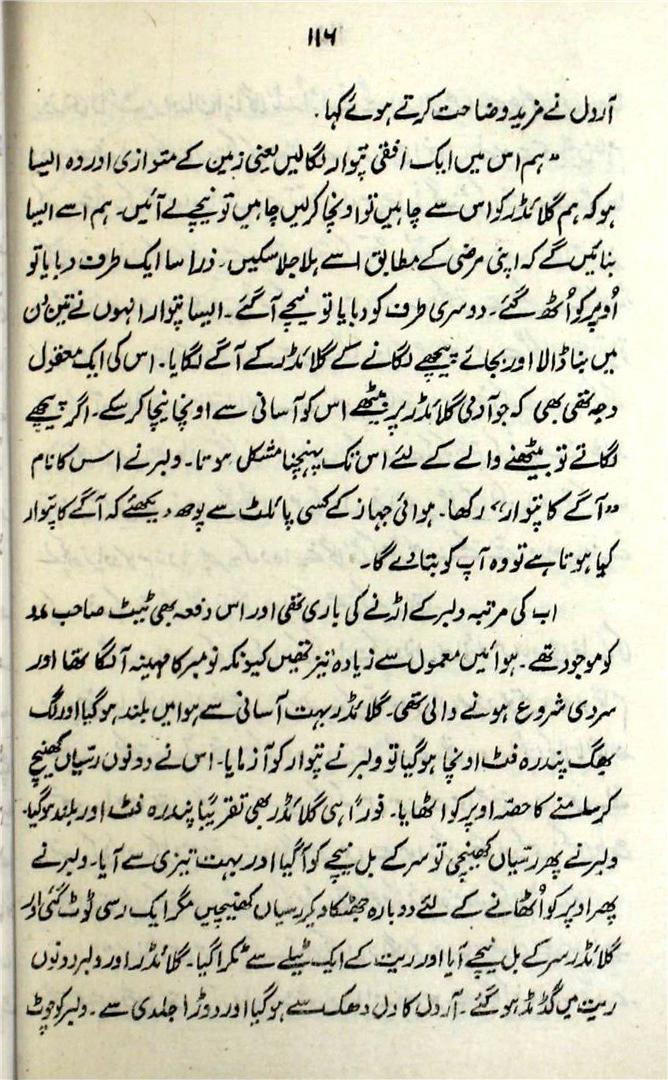 ۱۱۶
آرول نے مزید وضاحت کرتے ہوئے کہا۔
”ہم اس میں ایک اُفقی پتوار لگا لیں یعنی زمین کے متوازی اور وہ ایسا
ہو کہ ہم گلائڈر کو اس سے چاہیں تو اونچا کر لیں چاہیں تو نیچے لے آئیں۔ ہم اسے ایسا
بنائیں گے کہ اپنی مرضی کے مطابق اسے ہلا جلا سکیں۔ ذرا سا ایک طرف دبایا تو
اُوپر کو اُٹھ گئے۔ دوسری طرف کو دبایا تو نیچے آ گئے۔ ایسا پتوار انہوں نے تین دن
میں بنا ڈالا اور بجائے پیچھے لگانے کے گلائڈر کے آگے لگایا۔ اس کی ایک معقول
وجہ تھی بھی کہ جو آدمی گلائڈر پر بیٹھے اس کو آسانی سے اونچا نیچا کر سکے۔ اگر پیچھے
لگاتے تو بیٹھنے والے کے لئے اس تک پہنچنا مشکل ہوتا۔ ولبر نے اس کا نام
”آگے کا پتوار“ رکھا۔ ہوائی جہاز کے کسی پائلٹ سے پوچھ دیکھئے کہ آگے کا پتوار
کیا ہوتا ہے تو وہ آپ کو بتا دے گا۔
اب کی مرتبہ ولبر کے اڑنے کی باری تھی اور اس دفعہ بھی ٹیٹ صاحب مدد
کو موجود تھے۔ ہوائیں معمول سے زیادہ تیز تھیں کیونکہ نومبر کا مہینہ آ لگا تھا اور
سردی شروع ہونے والی تھی۔ گلائڈر بہت آسانی سے ہوا میں بلند ہو گیا اور لگ
بھگ پندرہ فٹ اونچا ہو گیا تو ولبر نے پتوار کو آزمایا۔ اس نے دونوں رسیاں کھینچ
کر سامنے کا حصہ اوپر کو اٹھایا۔ فوراً ہی گلائڈر بھی تقریباً پندرہ فٹ اور بلند ہو گیا۔
ولبر نے پھر رسیاں کھینچی تو سر کے بل نیچے کو آ گیا اور بہت تیزی سے آیا۔ ولبر نے
پھر اوپر کو اُٹھانے کے لئے دوبارہ جھٹکا دیکر رسیاں کھینچیں مگر ایک رسی ٹوٹ گئی اور
گلائڈر سر کے بل نیچے آیا اور ریت کے ایک ٹیلے سے ٹکرا گیا۔ گلائڈر اور ولبر دونوں
ریت میں گڈمڈ ہو گئے۔ آرول کا دل دھک سے ہو گیا اور دوڑا جلدی سے۔ ولبر کو چوٹ